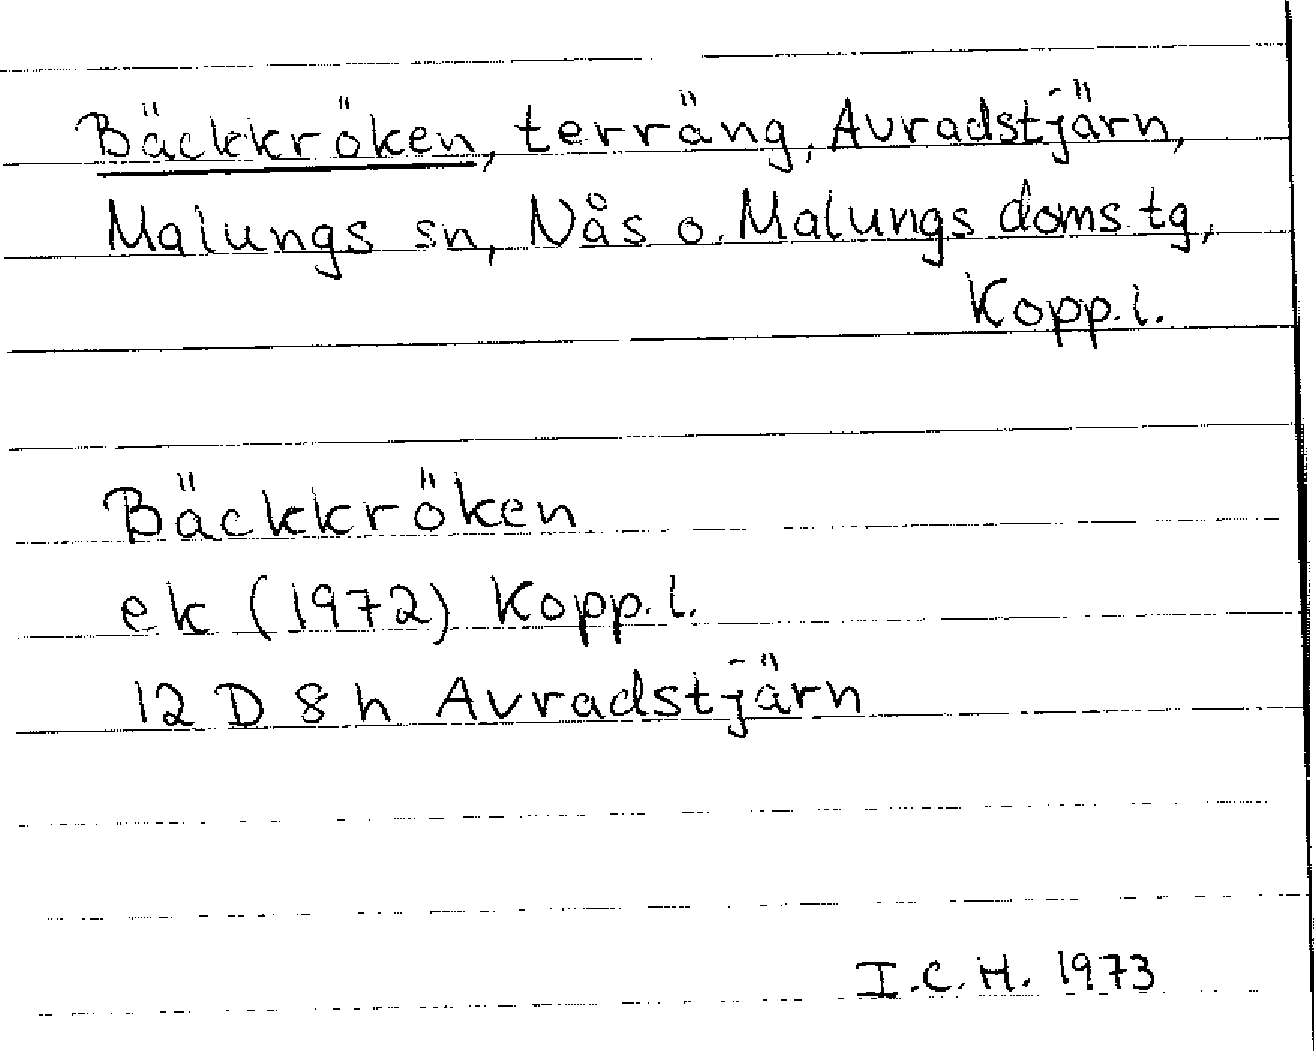 Bäckkröken, terräng, Avradstjärn,
Malungs sn, Nås o. Malungs doms tg,
Kopp. l.
Bäckkröken
ek (1972) Kopp. l.
12 D 8 h Avradstjärn
I. C. H. 1973